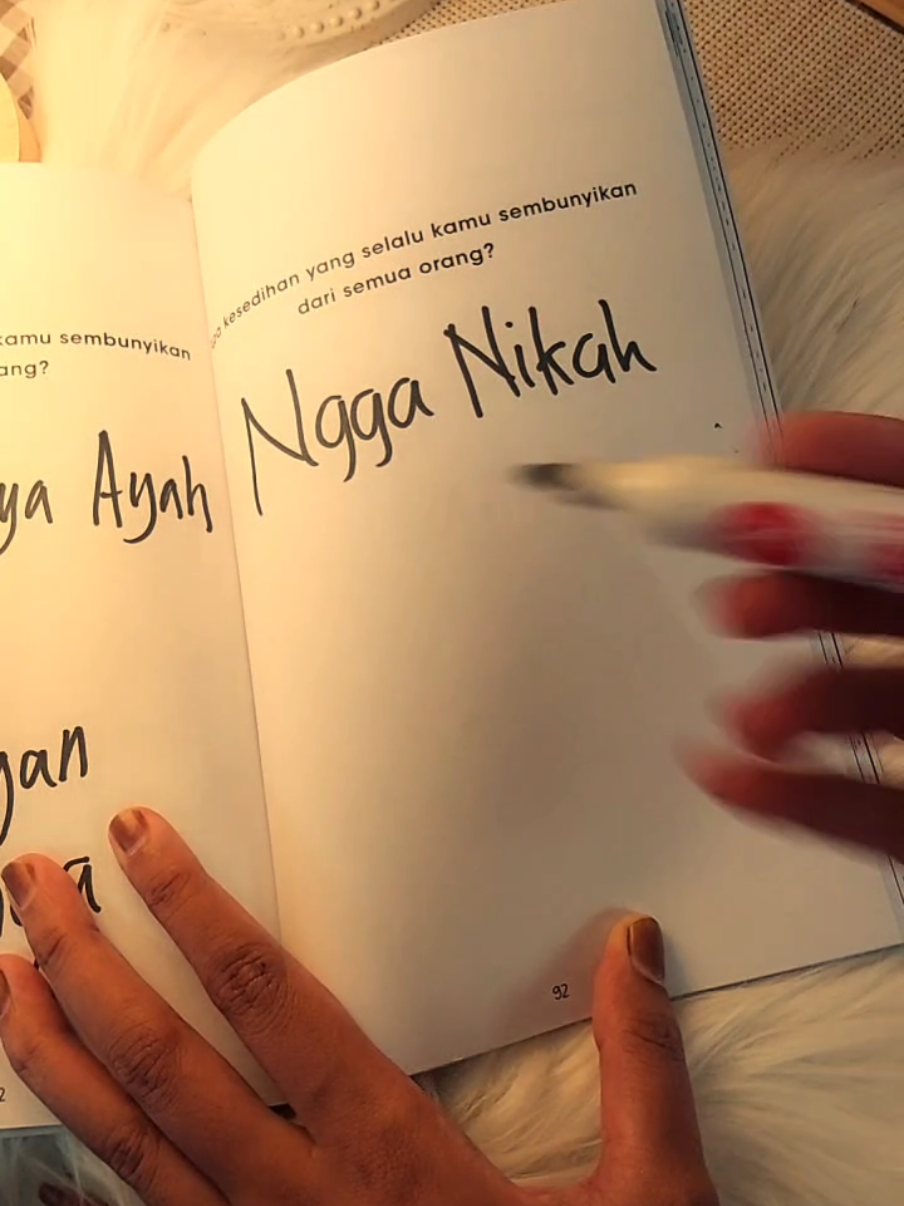 kamu sembunyikan
Ayah
kesedihan yang selalu kamu sembunyikan
dari semua orang?
Ngga Nikah
92